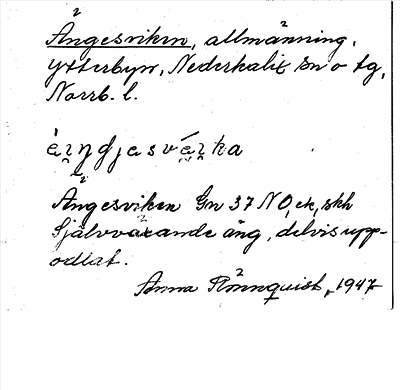 Ängesviken, allmänning,
Ytterbyn, Nederkalix sn o tg,
Norrb. l.
Ängesviken Gn 37 NO, ek, skh
Självväxande äng, delvis upp-
odlat.
Anna Rönnquist, 1947